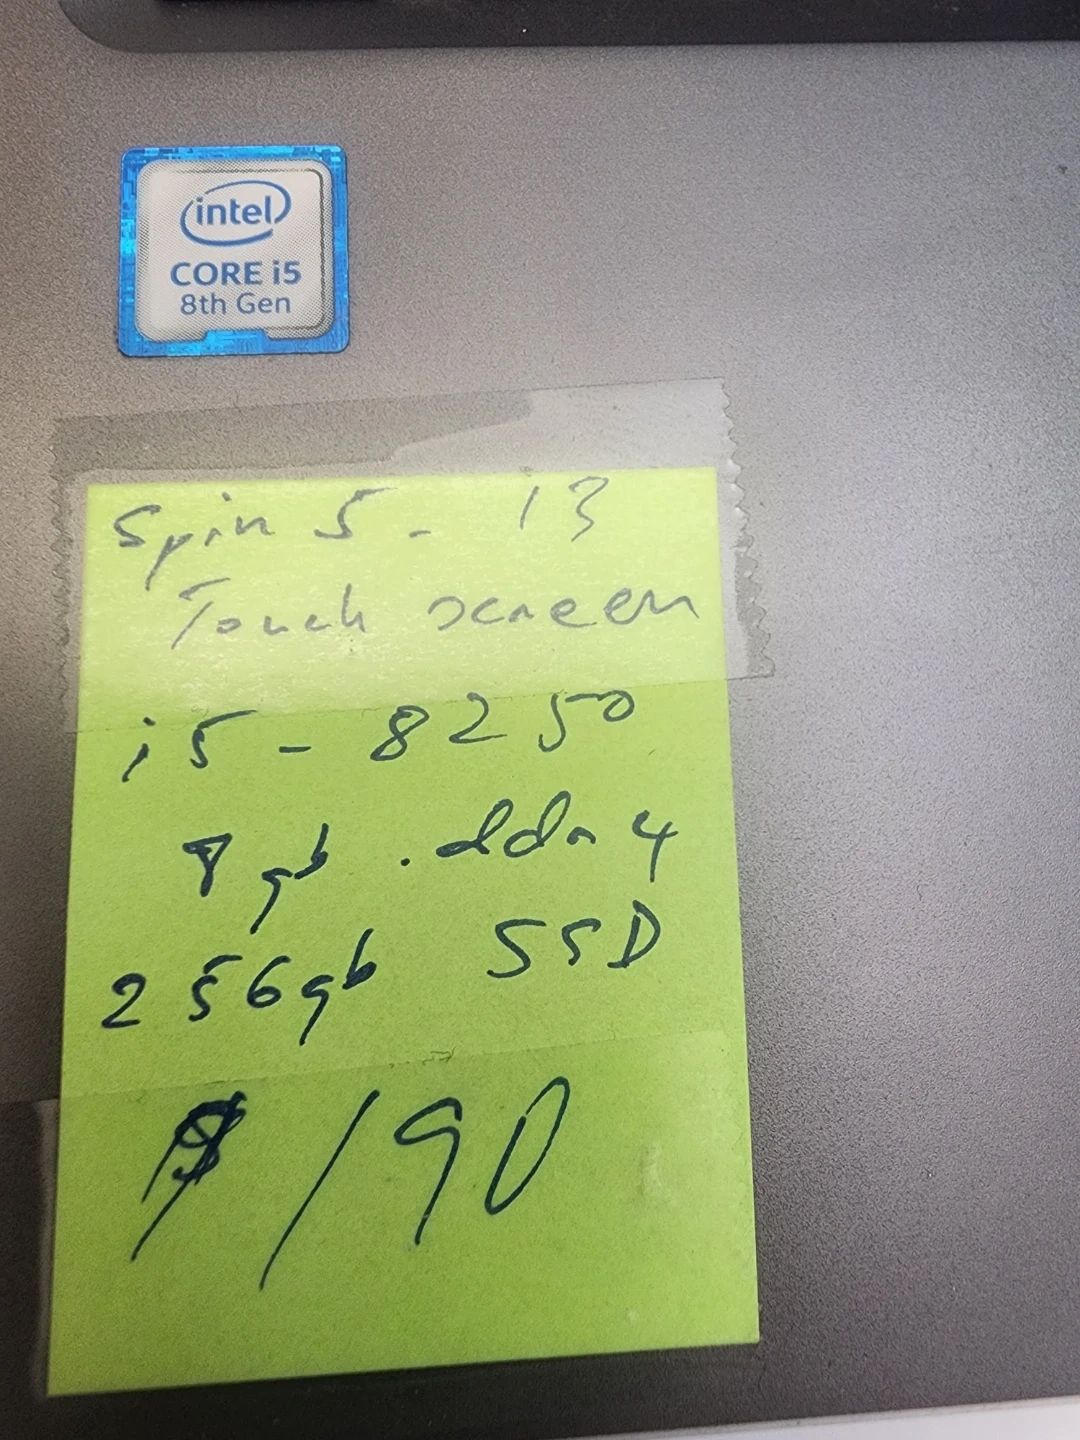 intel
CORE i5
8th Gen
Spin 5 - 13
Touch screen
i5 - 8250
8gb . ddr4
256gb SSD
$ 190